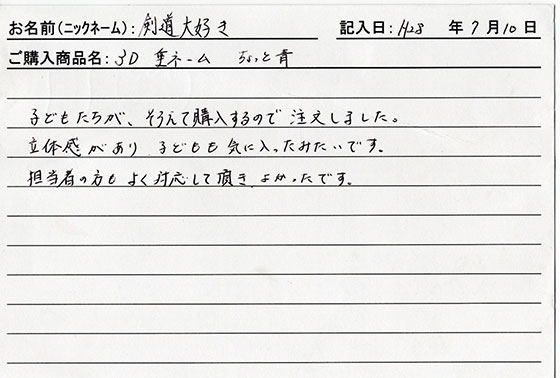 お名前(ニックネーム):剣道大好き 記入日:H28 年 7月10日
ご購入商品名:3D 垂ネーム ちょっと青
子どもたちが、そろえて購入するので 注文しました。
立体感があり 子どもも気に入ったみたいです。
担当者の方も よく対応して頂き よかったです。